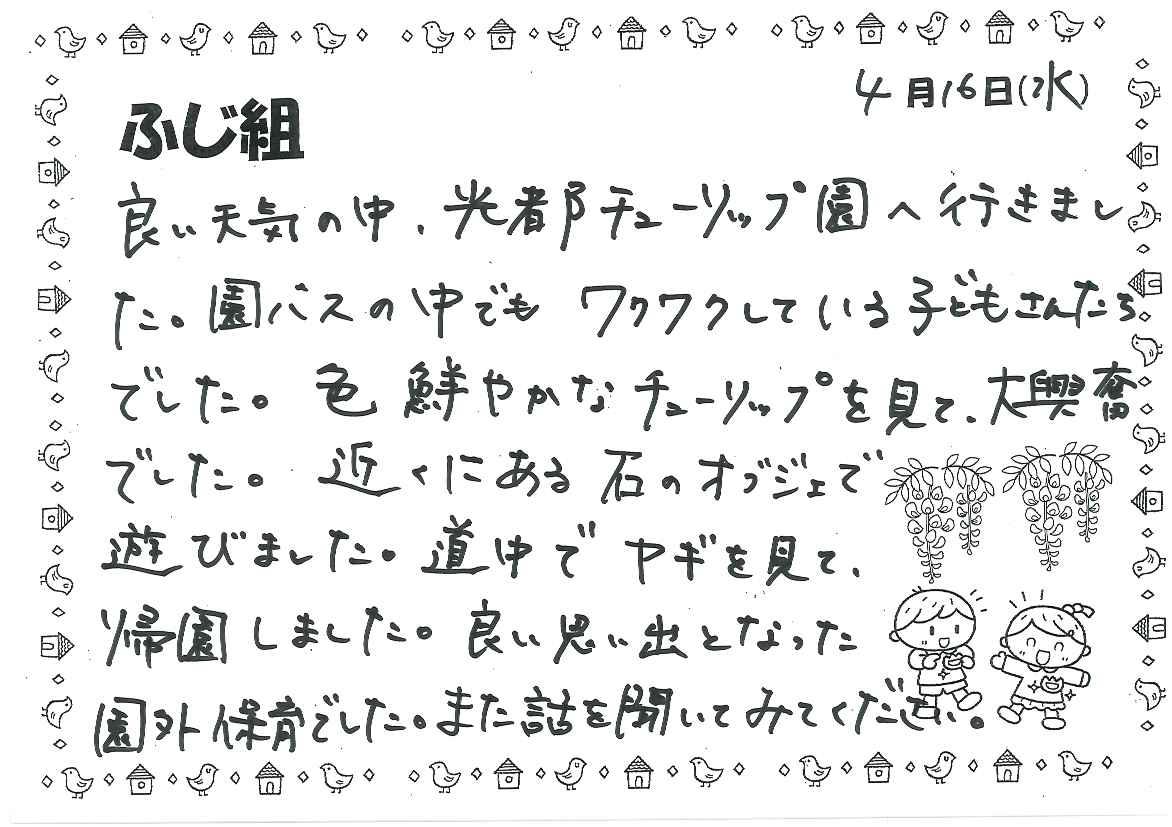 4月16日(水)
ふじ組
良い天気の中、光都チューリップ園へ行きまし
た。園バスの中でも ワクワクしている子どもさんたち
でした。色鮮やかなチューリップを見て、大興奮
でした。近くにある石のオブジェで
遊びました。道中でヤギを見て、
帰園しました。良い思い出となった
園外保育でした。また話を聞いてみてください。